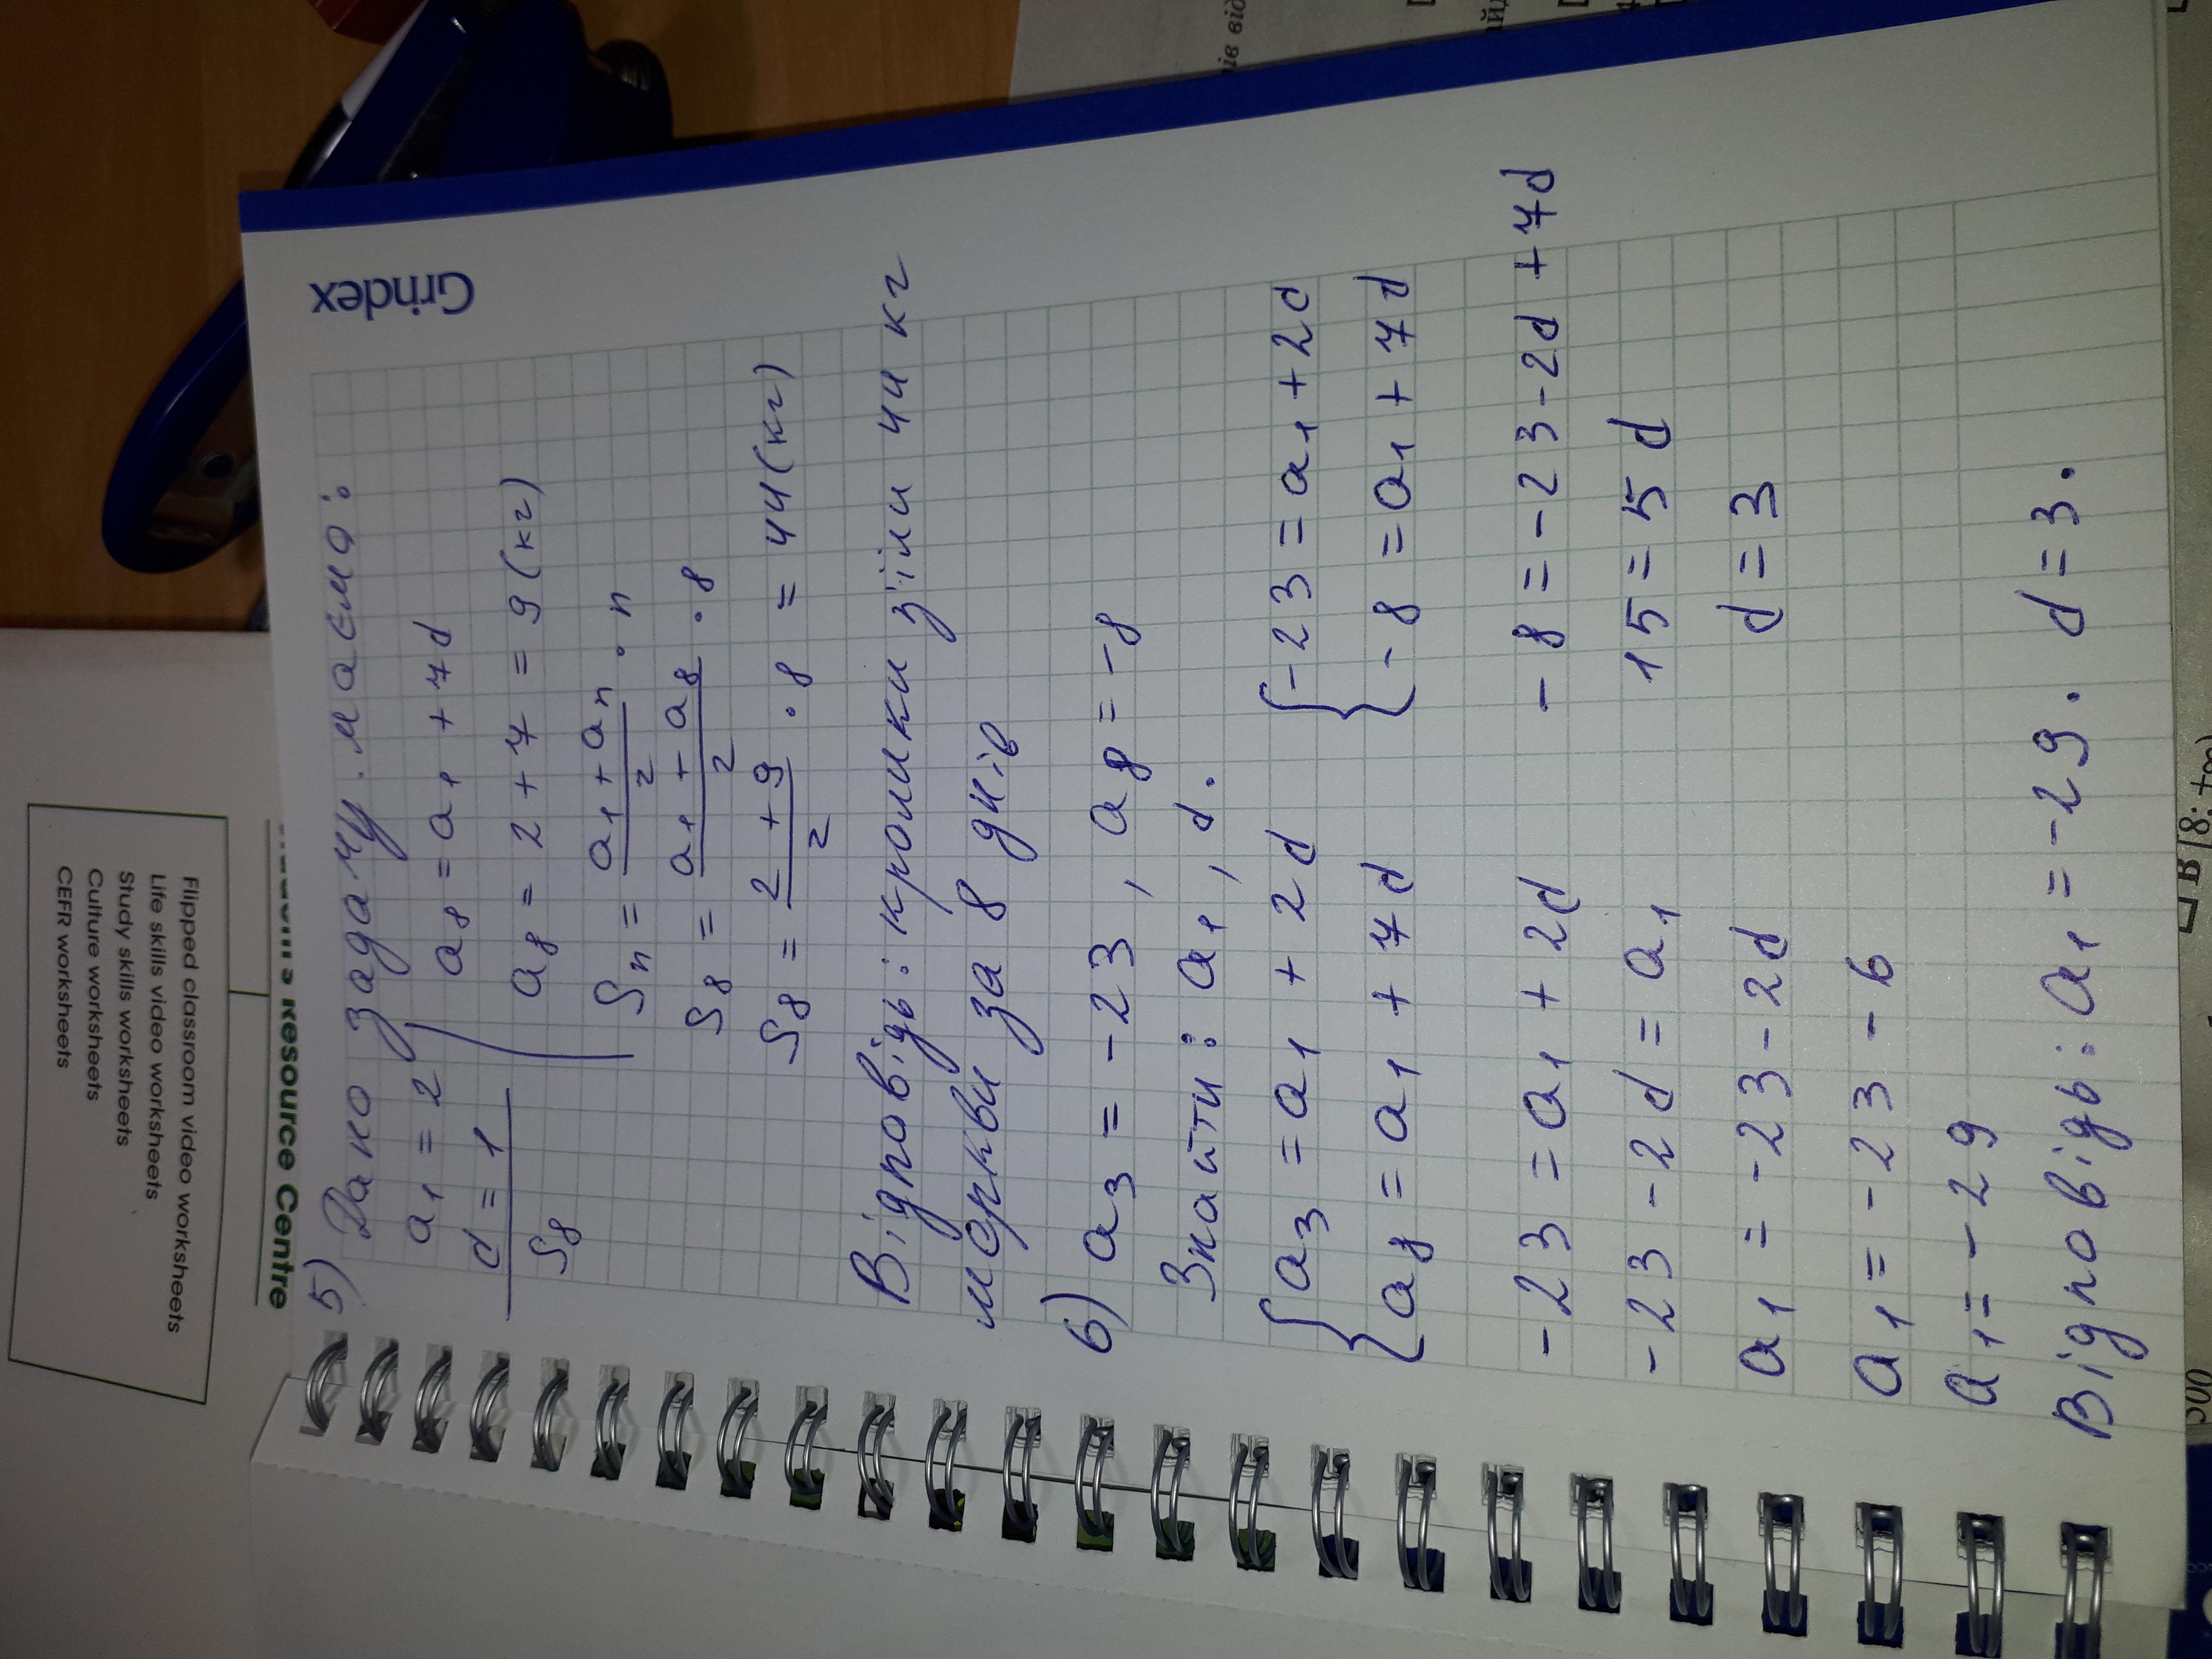 Grindex
5) Дано задачу. маємо:
a₁ = 2
d = 1
S₈
a₈ = a₁ + 7d
a₈ = 2 + 7 = 9 (кг)
Sₙ = (a₁ + aₙ)/2 · n
S₈ = (a₁ + a₈)/2 · 8
S₈ = (2 + 9)/2 · 8 = 44 (кг)
Відповідь: кролики з'їли 44 кг
моркви за 8 днів
6) a₃ = -23, a₈ = -8
Знайти: a₁, d.
{ a₃ = a₁ + 2d { -23 = a₁ + 2d
{ a₈ = a₁ + 7d { -8 = a₁ + 7d
-23 = a₁ + 2d -8 = -23 - 2d + 7d
-23 - 2d = a₁ 15 = 5d
a₁ = -23 - 2d d = 3
a₁ = -23 - 6
a₁ = -29
Відповідь: a₁ = -29. d = 3.
Resource Centre
Flipped classroom video worksheets
Life skills video worksheets
Study skills worksheets
Culture worksheets
CEFR worksheets